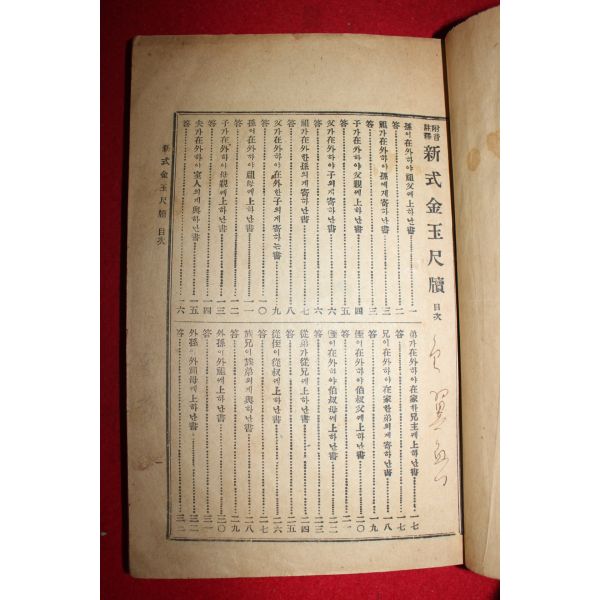 附音
註釋
新式金玉尺牘 目次
孫이在外하야祖父에上하난書 一
答 二
祖가在外하야孫에게寄하난書 三
答 三
子가在外하야父親에上하난書 四
答 五
父가在外하야子의게寄하난書 六
答 六
祖가在外한孫의게寄하난書 七
答 八
父가在外하야在外한子의게寄하는書 九
答 一〇
孫이在外하야祖母에上하난書 一一
答 一二
子가在外하야母親에上하난書 一三
答 一四
夫가在外하야室人의게與하난書 一五
答 一六
弟가在外하야在家한兄主에上하난書 一七
答 一七
兄이在外하야在家한弟의게寄하난書 一八
答 一九
侄이在外하야伯叔父에上하난書 二〇
答 二一
侄이在外하야伯叔母에上하난書 二二
答 二三
從弟가從兄에上하난書 二四
答 二五
從侄이從叔에上하난書 二六
答 二七
族兄이族弟의게與하난書 二八
答 二九
外孫이外祖에上하난書 三〇
答 三一
外孫이外祖母에上하난書 三二
答 三二
新式金玉尺牘 目次